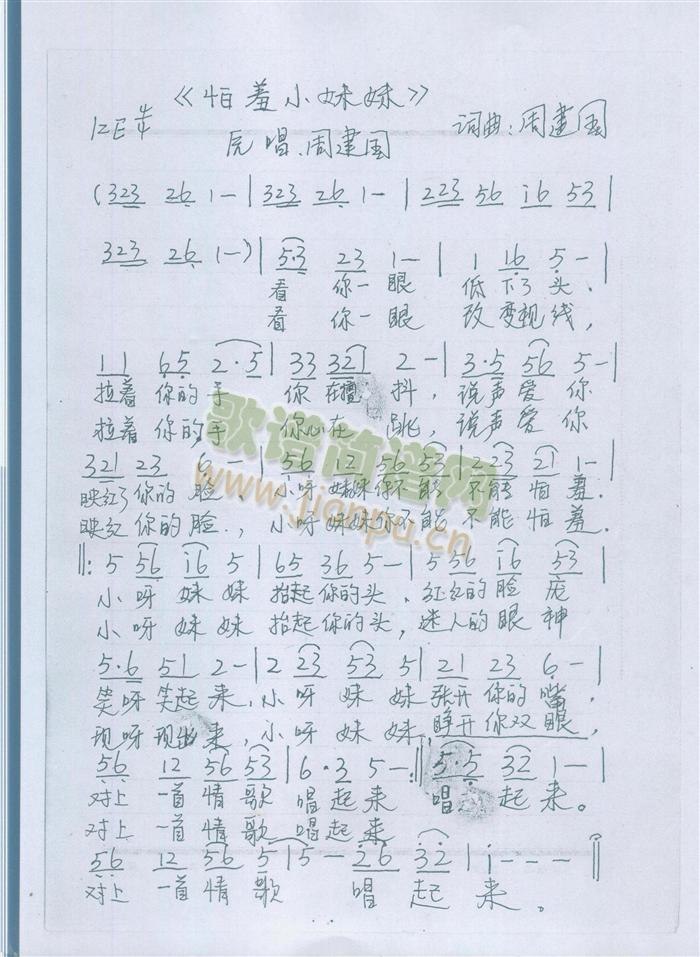 《怕羞小妹妹》
词曲:周建国
原唱.周建国
(323 26 1—|323 26 1—|223 56 i6 53|
323 26 1—)|5·3 23 1—|1 16 5—|
看 你一眼 低下了头、
看 你一眼 改变视线,
11 65 2·5|33 321 2—|3·5 56 5—|
拉着 你的手 你在擅抖,说声爱你
拉着 你的手 你心在跳,说声爱你
321 23 6—|56 12 56 53|223 21 1—|
映红了你的脸、小呀妹妹你不能不能怕羞.
映红你的脸.,小呀妹妹你不能不能怕羞.
‖:5 56 i6 5|65 36 5—|5 56 i6 53|
小呀妹妹抬起你的头、红红的脸庞
小呀妹妹抬起你的头,迷人的眼神
5·6 51 2—|2 23 53 5|21 23 6—|
笑呀笑起来,小呀妹妹张开你的嘴,
现呀现出来,小呀妹妹睁开你双眼,
56 12 56 53|6·3 5—:‖5·5 32 1—|
对上一首情歌唱起来 唱起来。
对上一首情歌唱起来
56 12 56 5|5—26 32|i———‖
对上一首情歌 唱起来。
歌谱简谱网
www.jianpu.cn